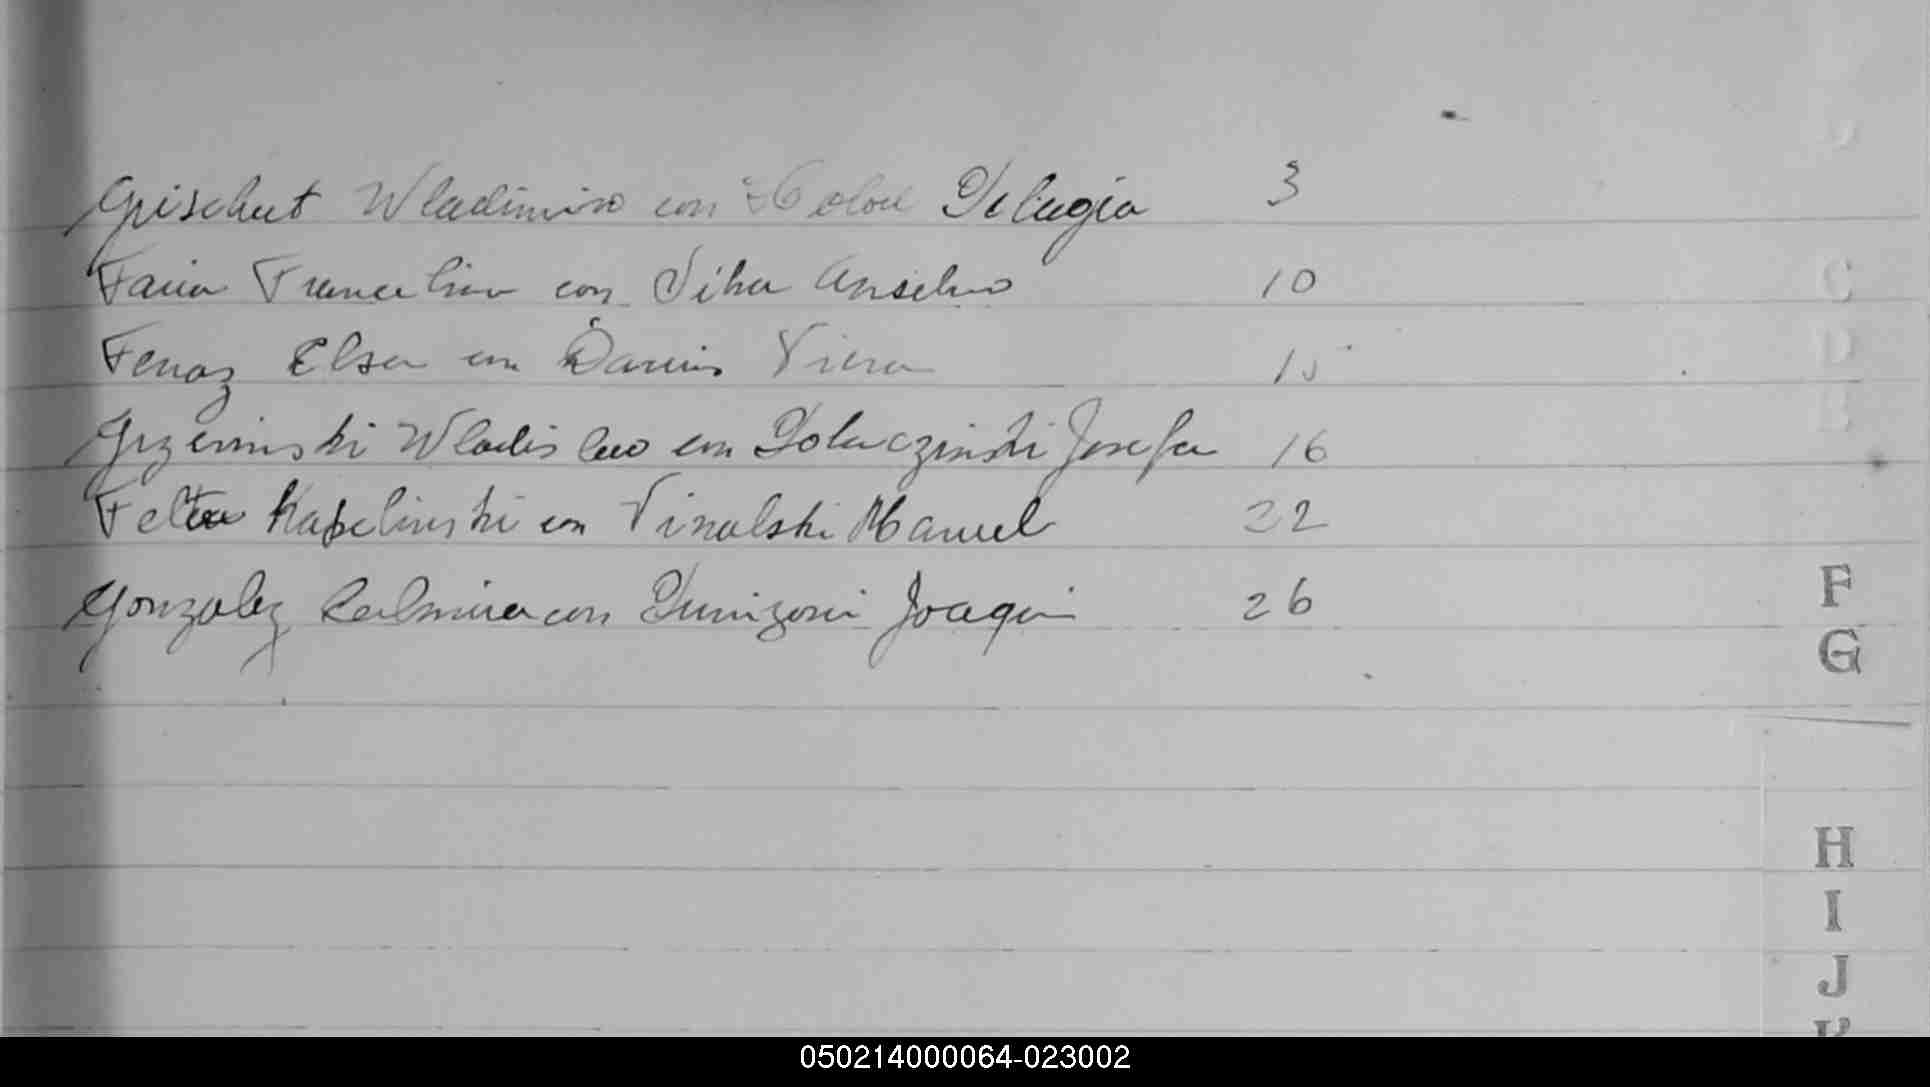 Grischut Wladimiro con Holod Pelagia 3
Faria Francelino con Silva Anselmo 10
Ferraz Elsa con Darcis Viera 15
Grzeminski Wladislao con Josefa 16
Felisa Kapelinski con Vinalski Manuel 22
Gonzalez con Joaquin 26
C
D
E
F
G
H
I
J
K
050214000064-023002